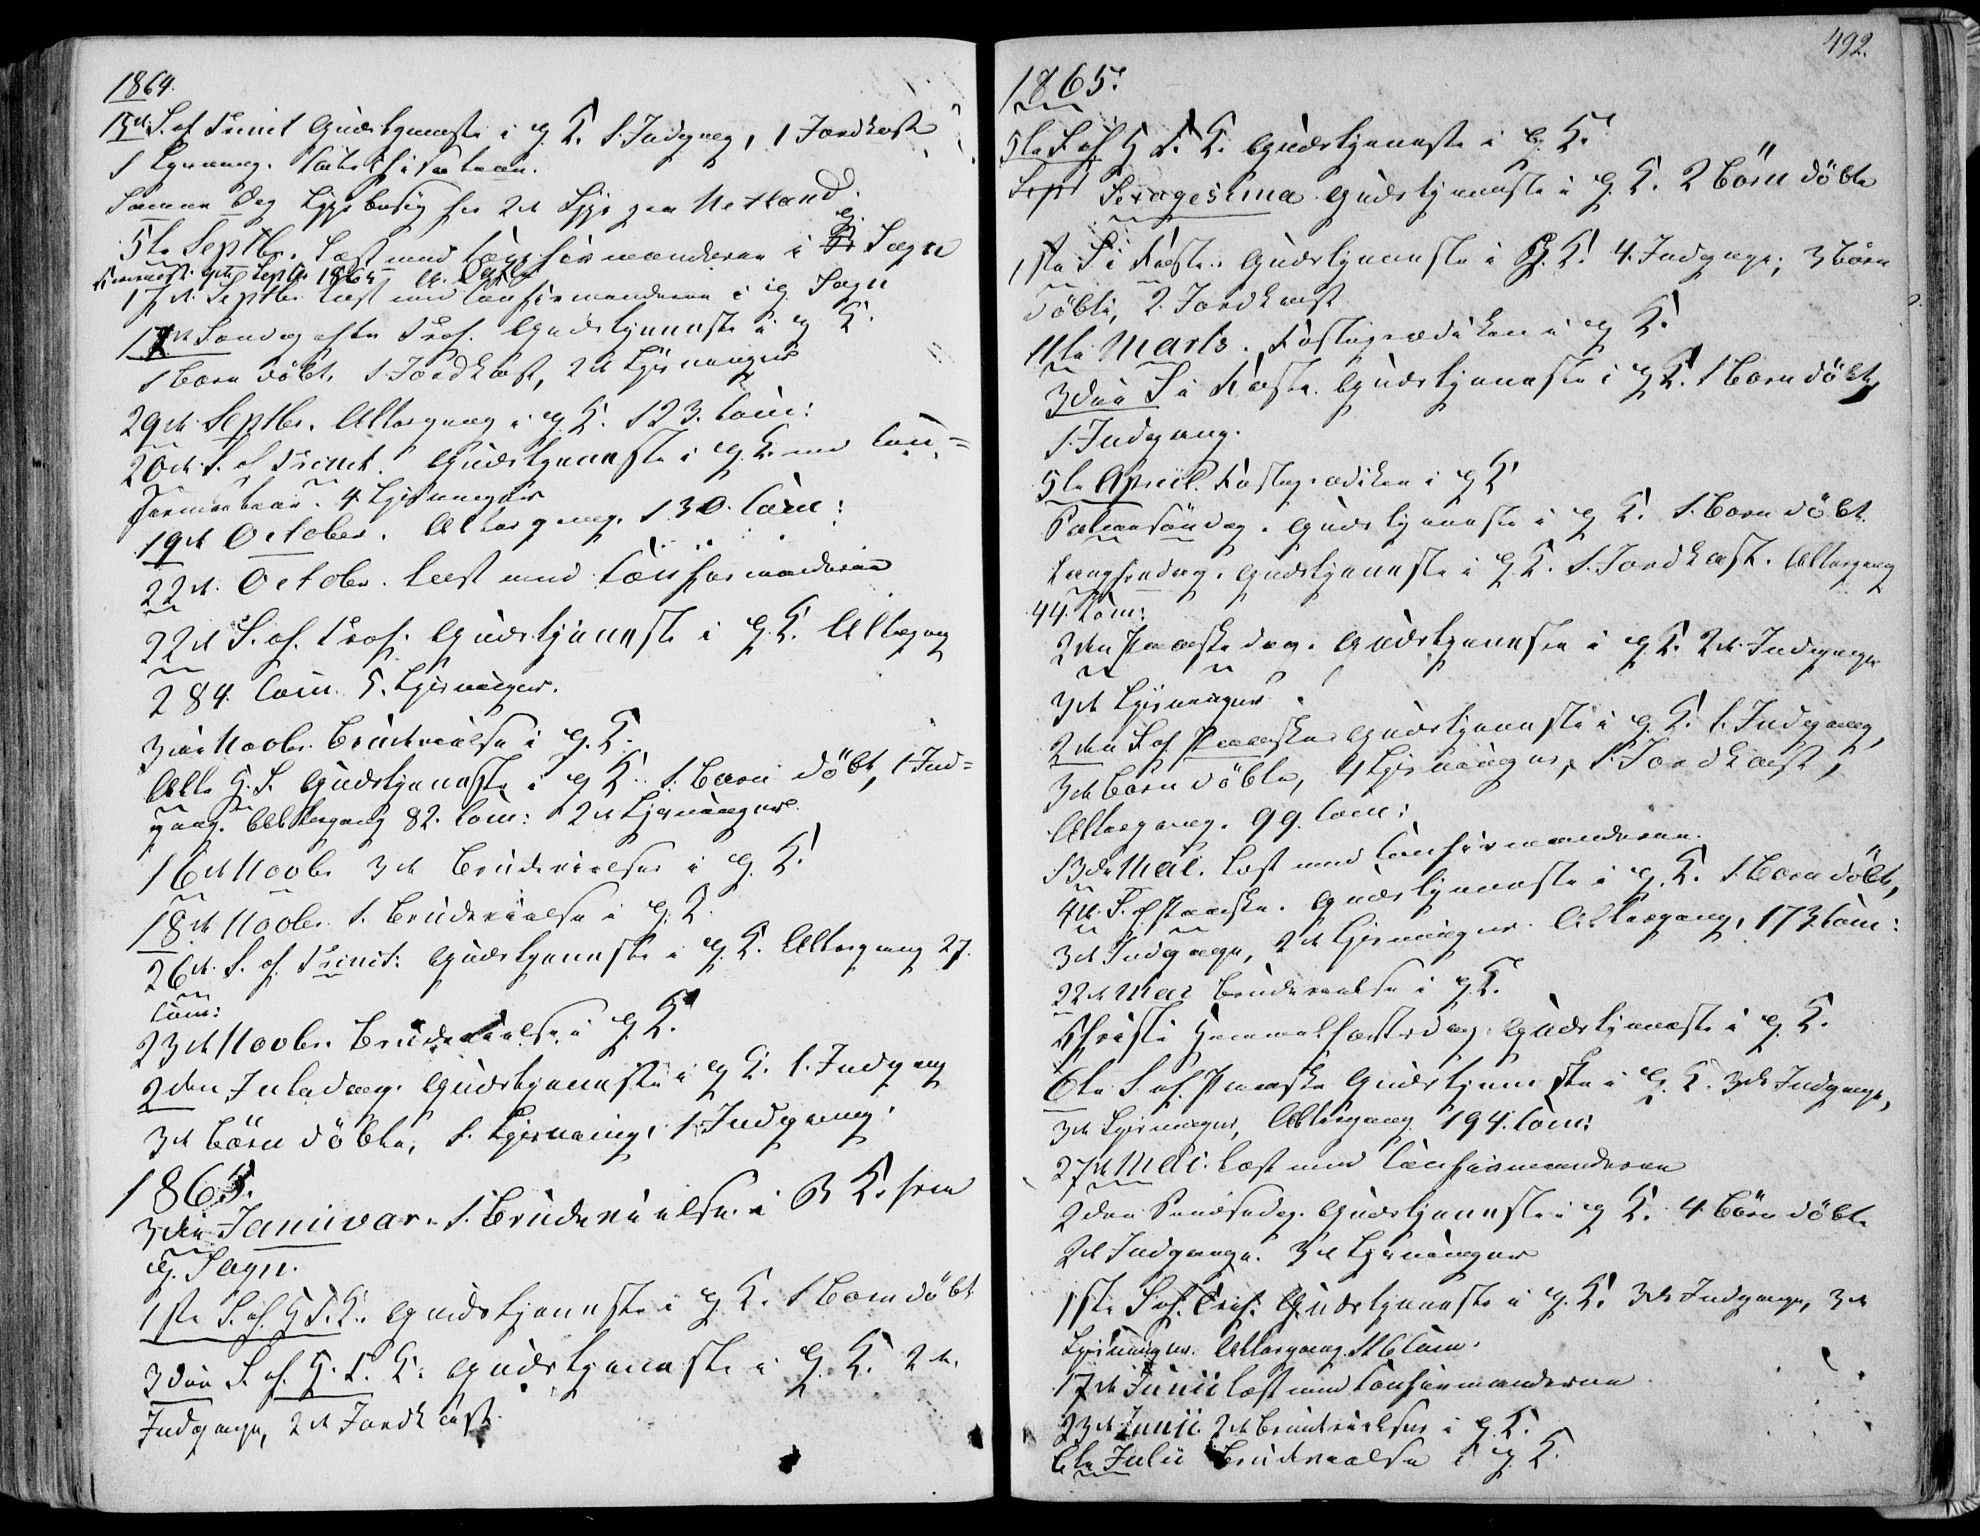 1864.
15de S. ef. Trinit Gudstjeneste i g. K. 1. Indgang, 1 Jordkast
1 Lysning.
Samme Dag
5te Septbr. Læst med Confirmanderne i g. Sogn
9de Septbr 1864
Septbr. læst med Confirmanderne i g. Sogn
17de Søndag efter Tref. Gudstjeneste i g K.
1 Barn döbt, 1 Jordkast, 2de Lysninger
29de Septbr. Altergang i g. K. 123. Com:
20de S. ef Trinit. Gudstjeneste i g. K. med Con-
firmation. 4 Lysninger
19de October. Altergang. 130. Com:
22de October. læst med Confirmanderne
22de S. ef. Tref. Gudstjeneste i g. K. Altergang
284. Com. 5. Lysninger.
3die Novbr. Brudevielse i g. K.
Alle H. S. Gudstjeneste i g K. 1. Barn döbt, 1 Ind-
gang. Altergang 82. Com: 2de Lysninger
16de Novbr 3de Brudevielser i g. K.
18de Novbr 1. Brudevielse i g. K.
26de S. ef. Trinit: Gudstjeneste i g. K. Altergang 27.
Com:
23de Novbr. Brudevielse i g. K.
2den Juledag. Gudstjeneste i g K. 1. Indgang
3de Börn döbte, 1. Lysning, 1 Indgang.
1865.
3die Januar. 1. Brudevielse i B K. fra
g. Sogn.
1ste S. ef. H. T. K. Gudstjeneste i g. K. 1 Barn döbt
3die S. ef. H. T. K. Gudstjeneste i g. K. 2de
Indgange, 2de Jordkast.
492.
1865.
5te S ef H T. K. Gudstjeneste i g. K.
Sexagesima Gudstjeneste i g. K. 2 Börn döbte
1ste S i Faste. Gudstjeneste i g. K. 4. Indgange, 3 Börn
döbte, 2. Jordkast
Marts. Fasteprædiken i g K.
3die S i Faste. Gudstjeneste i g K. 1 Barn döbt,
1. Indgang.
5te April. Fasteprædiken i g K
Palmesöndag. Gudstjeneste i g K. 1. Barn döbt.
Langfredag. Gudstjeneste i g. K. 1. Jordkast. Altergang
44. Com:
2den Paaskedag. Gudstjeneste i g. K. 2de Indgange
3de Lysninger
2den S ef Paaske Gudstjeneste i g. K. 1. Indgang,
3de Börn döbte, 4 Lysninger, 1. Jordkast,
Altergang. 99. Com:
13de Mai. læst med Confirmanderne.
4de S. ef Paaske. Gudstjeneste i g. K. 1. Barn döbt,
3de Indgange, 2de Lysninger. Altergang, 173 Com:
22de Mai Brudevielse i g. K.
Christi Himmelfartsdag. Gudstjeneste i g. K.
6te S ef. Paaske Gudstjeneste i g. K. 3de Indgange,
3de Lysninger, Altergang 194. Com:
27de Mai. læst med Confirmanderne
2den Pindsedag. Gudstjeneste i g K. 4 Börn döbte
2de Indgange. 3de Lysninger
1ste S ef. Tref. Gudstjeneste i g. K. 3de Indgange, 3de
Lysninger. Altergang 116 Com.
17de Junii læst med Confirmanderne
23de Junii. 2de Brudevielser i g. K.
6te Julii Brudevielse i g. K.